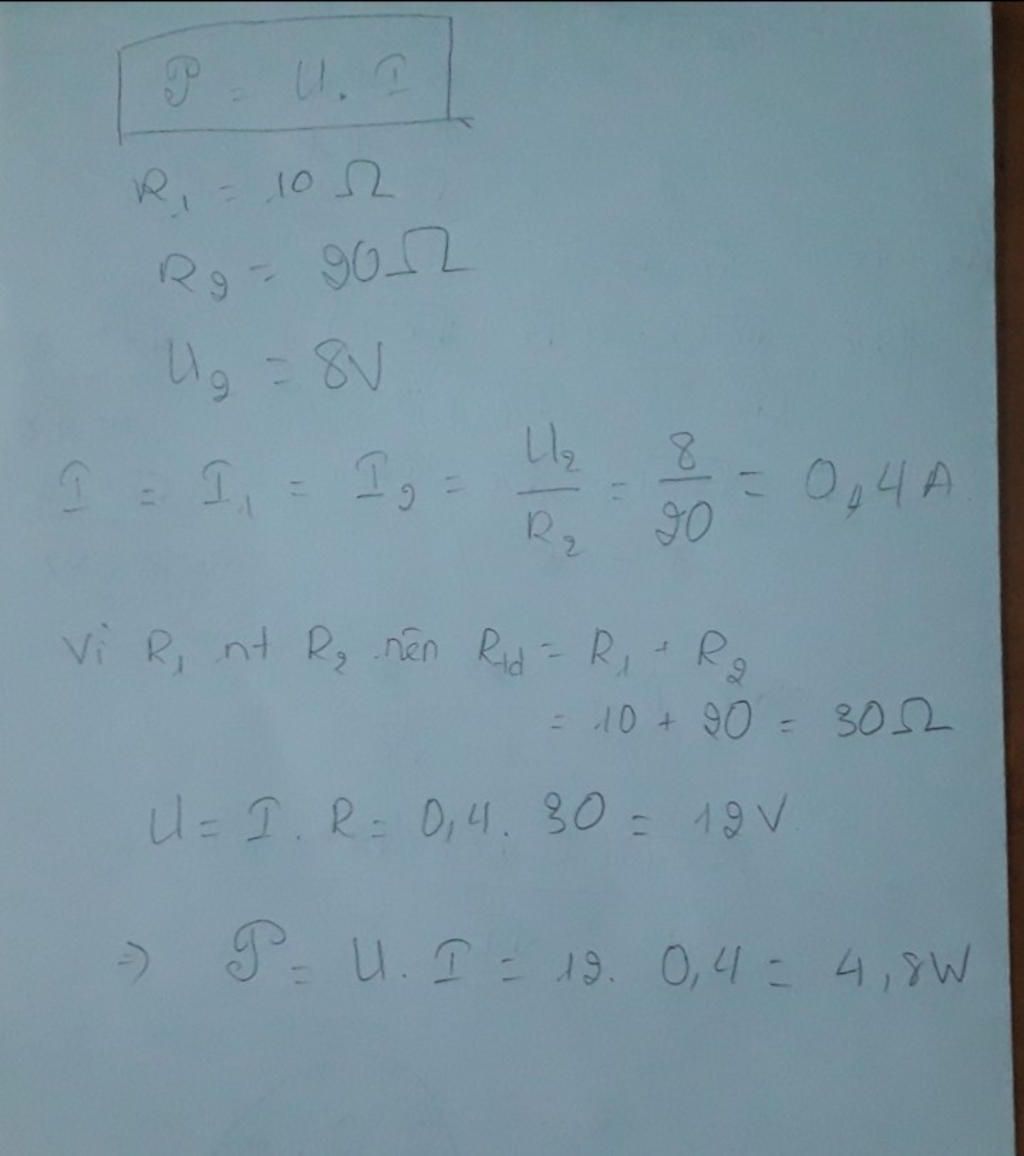 P = U. I
R₁ = 10 Ω
R₂ = 20 Ω
U₂ = 8V
I = I₁ = I₂ = U₂/R₂ = 8/20 = 0,4 A
Vì R₁ nt R₂ nên Rtd = R₁ + R₂
= 10 + 20 = 30 Ω
U = I. R = 0,4. 30 = 12 V
=> P = U. I = 12. 0,4 = 4,8W